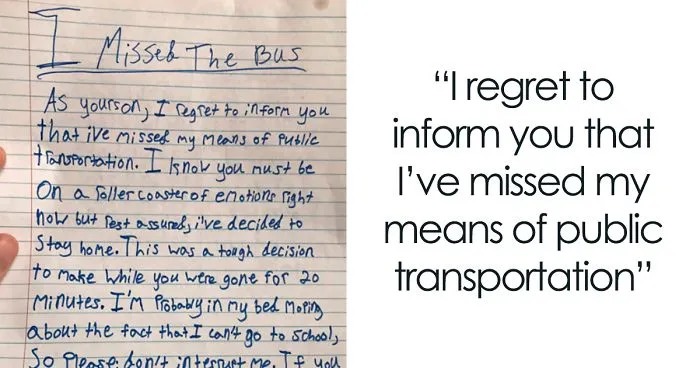 I Missed The Bus
As yourson, I regret to inform you
that ive missed my means of Public
transportation. I know you must be
On a rollercoaster of emotions right
now but rest assured, i've decided to
Stay home. This was a tough decision
to make while you were gone for 20
Minutes. I'M Probably in my bed Moping
about the fact that I can't go to school,
So Please, don't interrupt me. If you
“I regret to
inform you that
I’ve missed my
means of public
transportation”